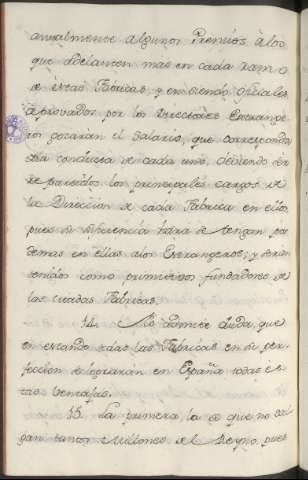 anualmente algunos Premios à los
que adelanten mas en cada ramo
de estas Fabricas, y en siendo Oficiales
aprovados por los Directores Extrange-
ros gozarán el Salario, que corresponda
à la conducta de cada uno, debiendo ser
repartidos los principales cargos de
la Direccion de cada Fabrica en ellos,
pues su experiencia hará se tengan
demas en ellas a los Extrangeros, y
tenidos como primitivos fundadores de
las citadas Fabricas.
14. No admite duda, que
en estando todas las Fabricas en su per-
feccion se lograrán en España todas es-
tas ventajas.
15. La primera la de que no sal-
gan tantos Millones del Reyno, pues